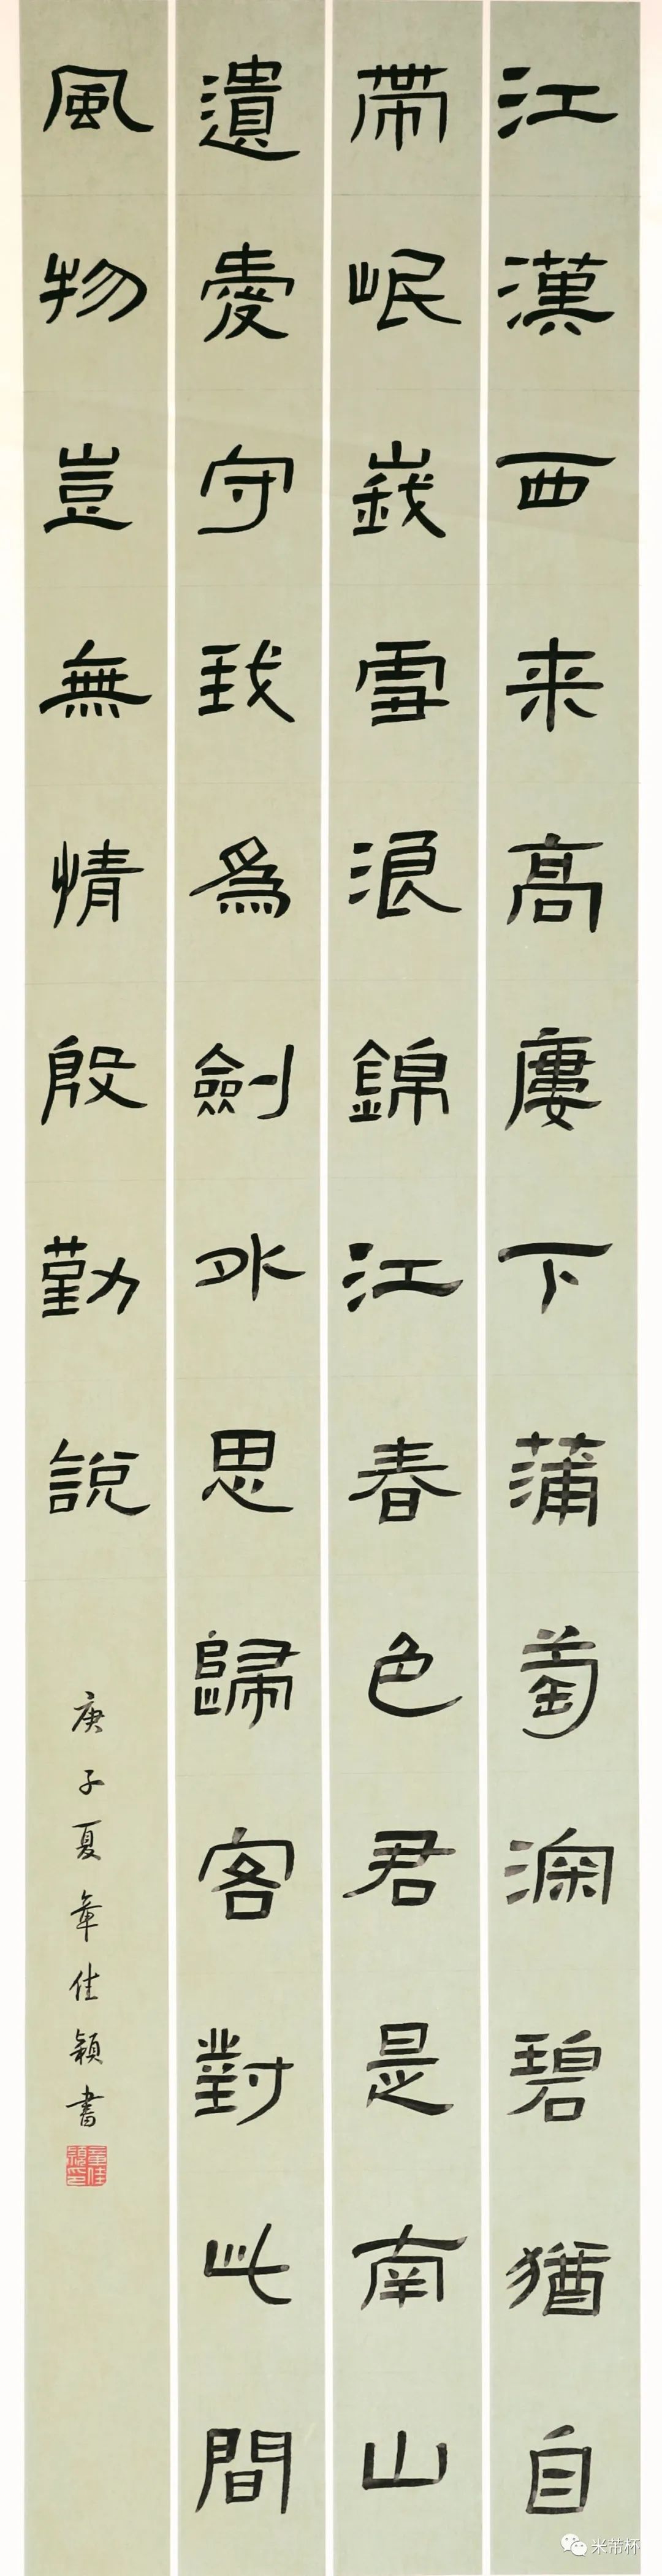 江漢西来高廔下蒲萄深碧猶自
帶岷峩雪浪錦江春色君是南山
遺愛守我爲劍外思歸客對此間
風物豈無情殷勤說
庚子夏章佳穎書
章佳穎印
米芾杯